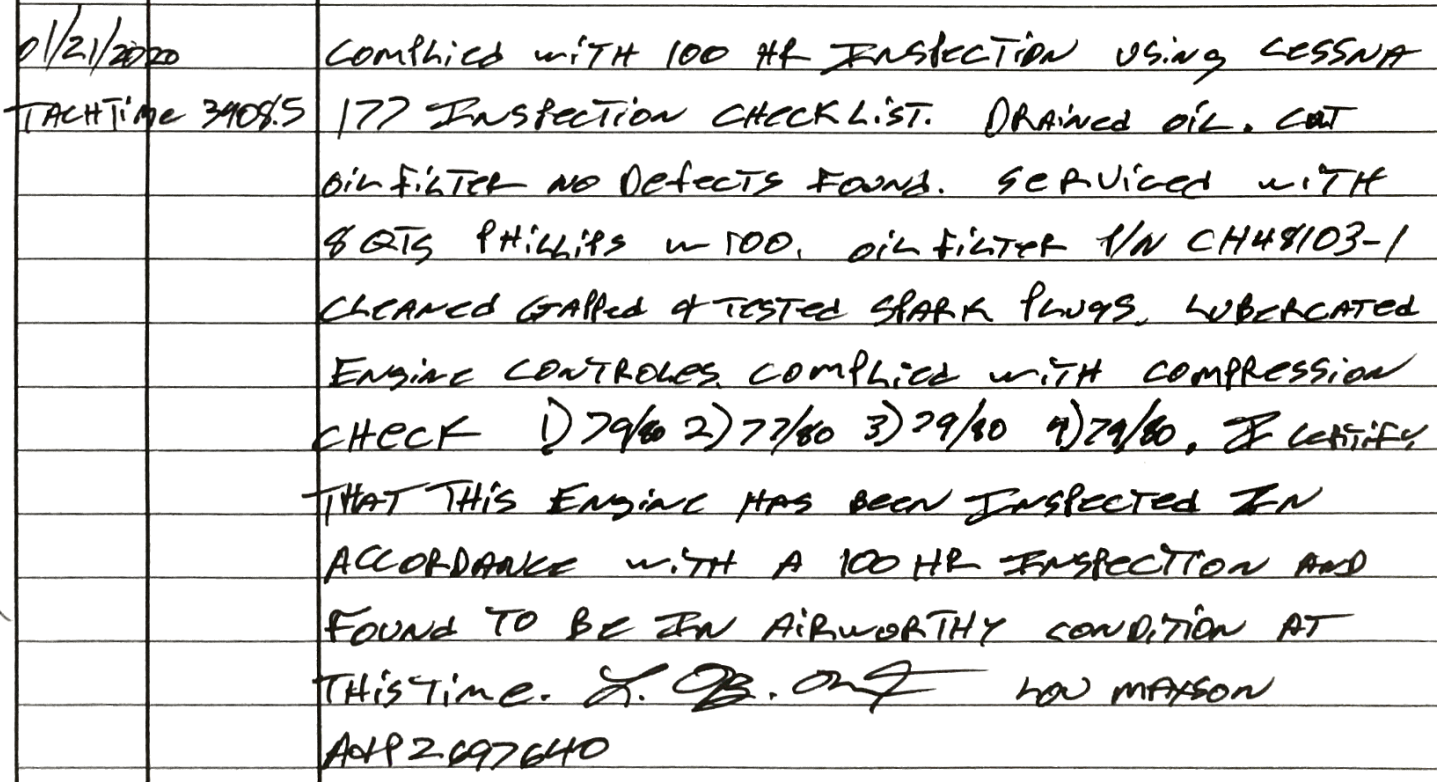 01/21/2020 Complied with 100 HR Inspection using Cessna
Tach Time 3908.5 177 Inspection Checklist. Drained oil. Cut
oil filter no defects found. Serviced with
8 QTS Phillips W100. oil filter P/N CH48103-1
Cleaned Gapped & Tested spark plugs. Lubercated
Engine controles. Complied with compression
check 1) 79/80 2) 77/80 3) 79/80 4) 79/80. I certify
that this Engine has been Inspected In
accordance with a 100 HR Inspection and
found to be In Airworthy condition at
this time. Lou Maxson
A&P 2697640